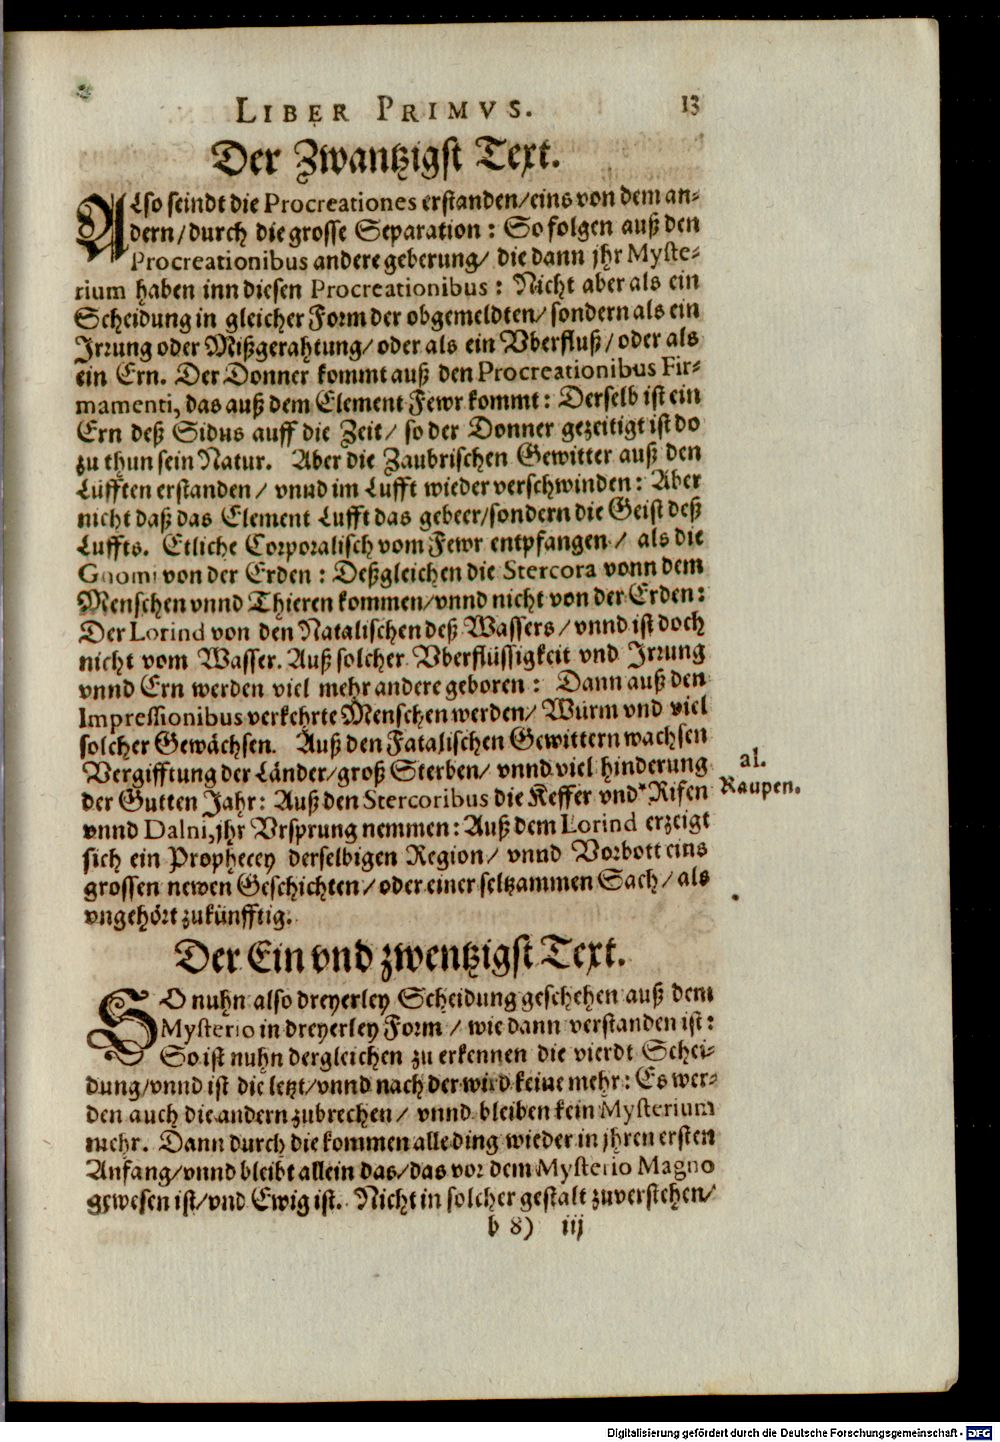 LIBER PRIMVS. 13
Der Zwantzigst Text.
Also seindt die Procreationes erstanden/eins von dem an-
dern/durch die grosse Separation: So folgen auß den
Procreationibus andere geberung/ die dann jhr Myste-
rium haben inn diesen Procreationibus: Nicht aber als ein
Scheidung in gleicher Form der obgemeldten/ sondern als ein
Irrung oder Mißgerahtung/ oder als ein Vberfluß/ oder als
ein Ern. Der Donner kommt auß den Procreationibus Fir-
mamenti, das auß dem Element Fewr kommt: Derselb ist ein
Ern deß Sidus auff die Zeit/ so der Donner gezeitigt ist do
zu thun sein Natur. Aber die Zaubrischen Gewitter auß den
Lüfften erstanden/ vnnd im Lufft wieder verschwinden: Aber
nicht daß das Element Lufft das gebeer/sondern die Geist deß
Luffts. Etliche Corporalisch vom Fewr entpfangen/ als die
Gnomi von der Erden: Deßgleichen die Stercora vonn dem
Menschen vnnd Thieren kommen/vnnd nicht von der Erden:
Der Lorind von den Natalischen deß Wassers/ vnnd ist doch
nicht vom Wasser. Auß solcher Vberflüssigkeit vnd Irrung
vnnd Ern werden viel mehr andere geboren: Dann auß den
Impressionibus verkehrte Menschen werden/ Würm vnd viel
solcher Gewächsen. Auß den Fatalischen Gewittern wachsen
Vergifftung der Länder/groß Sterben/ vnnd viel hinderung
der Gutten Jahr: Auß den Stercoribus die Keffer vnd *Rifen
vnnd Dalni, jhr Vrsprung nemmen: Auß dem Lorind erzeigt
sich ein Prophecey derselbigen Region/ vnnd Vorbott eins
grossen newen Geschichten/ oder einer seltzammen Sach/ als
vngehört zukünfftig.
al.
Raupen.
Der Ein vnd zwentzigst Text.
SO nuhn also dreyerley Scheidung geschehen auß dem
Mysterio in dreyerley Form/ wie dann verstanden ist:
So ist nuhn dergleichen zu erkennen die vierdt Schei-
dung/vnnd ist die letzt/vnnd nach der wird keine mehr: Es wer-
den auch die andern zubrechen/ vnnd bleiben kein Mysterium
mehr. Dann durch die kommen alle ding wieder in jhren ersten
Anfang/vnnd bleibt allein das/das vor dem Mysterio Magno
gewesen ist/vnd Ewig ist. Nicht in solcher gestalt zuverstehen/
b 8) iij
Digitalisierung gefördert durch die Deutsche Forschungsgemeinschaft - DFG